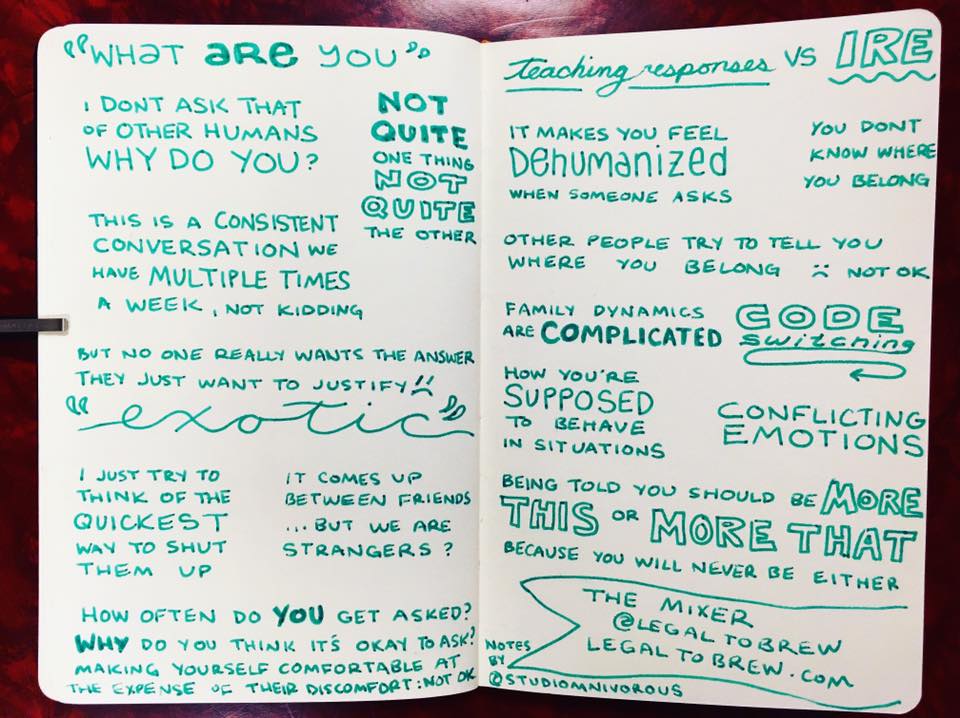 "WHAT ARE YOU"
I DONT ASK THAT
OF OTHER HUMANS
WHY DO YOU?
NOT
QUITE
ONE THING
NOT
QUITE
THE OTHER
THIS IS A CONSISTENT
CONVERSATION WE
HAVE MULTIPLE TIMES
A WEEK, NOT KIDDING
BUT NO ONE REALLY WANTS THE ANSWER
THEY JUST WANT TO JUSTIFY
"exotic"
I JUST TRY TO
THINK OF THE
QUICKEST
WAY TO SHUT
THEM UP
IT COMES UP
BETWEEN FRIENDS
...BUT WE ARE
STRANGERS?
HOW OFTEN DO YOU GET ASKED?
WHY DO YOU THINK IT'S OKAY TO ASK?
MAKING YOURSELF COMFORTABLE AT
THE EXPENSE OF THEIR DISCOMFORT: NOT OK
teaching responses VS IRE
IT MAKES YOU FEEL
DEHUMANIZED
WHEN SOMEONE ASKS
YOU DONT
KNOW WHERE
YOU BELONG
OTHER PEOPLE TRY TO TELL YOU
WHERE YOU BELONG :( NOT OK
FAMILY DYNAMICS
ARE COMPLICATED
CODE
switching
HOW YOU'RE
SUPPOSED
TO BEHAVE
IN SITUATIONS
CONFLICTING
EMOTIONS
BEING TOLD YOU SHOULD BE MORE
THIS OR MORE THAT
BECAUSE YOU WILL NEVER BE EITHER
THE MIXER
@LEGALTOBREW
LEGALTOBREW.COM
NOTES
BY
@STUDIOMNIVOROUS